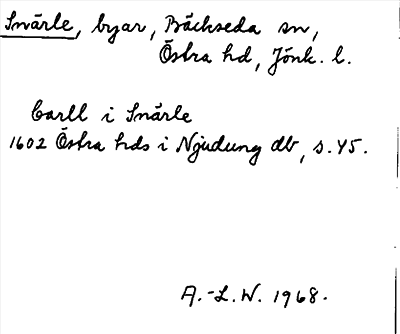 Snärle, byar, Bäckseda sn,
Östra hd, Jönk. l.
Carll i Snärle
1602 Östra hds i Njudung db, s. 45.
A.-L.W. 1968.